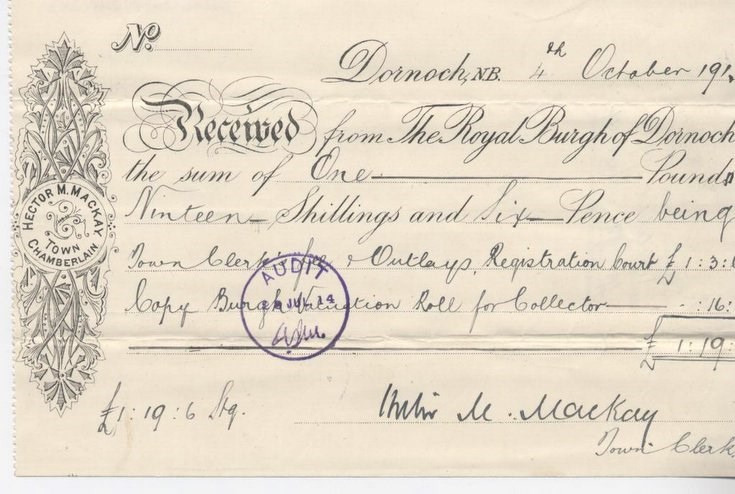 No.
Dornoch, N.B. 4th October 191
Received from The Royal Burgh of Dornoch
the sum of One Pound
Ninteen Shillings and Six Pence being
Town Clerk's fee & Outlays, Registration Court £1:3:
Copy Burgh Valuation Roll for Collector -:16:
£1:19:
£1:19:6 Stg.
M. Mackay
Town Clerk
HECTOR M. MACKAY
TOWN
CHAMBERLAIN
AUDIT
JUL 14